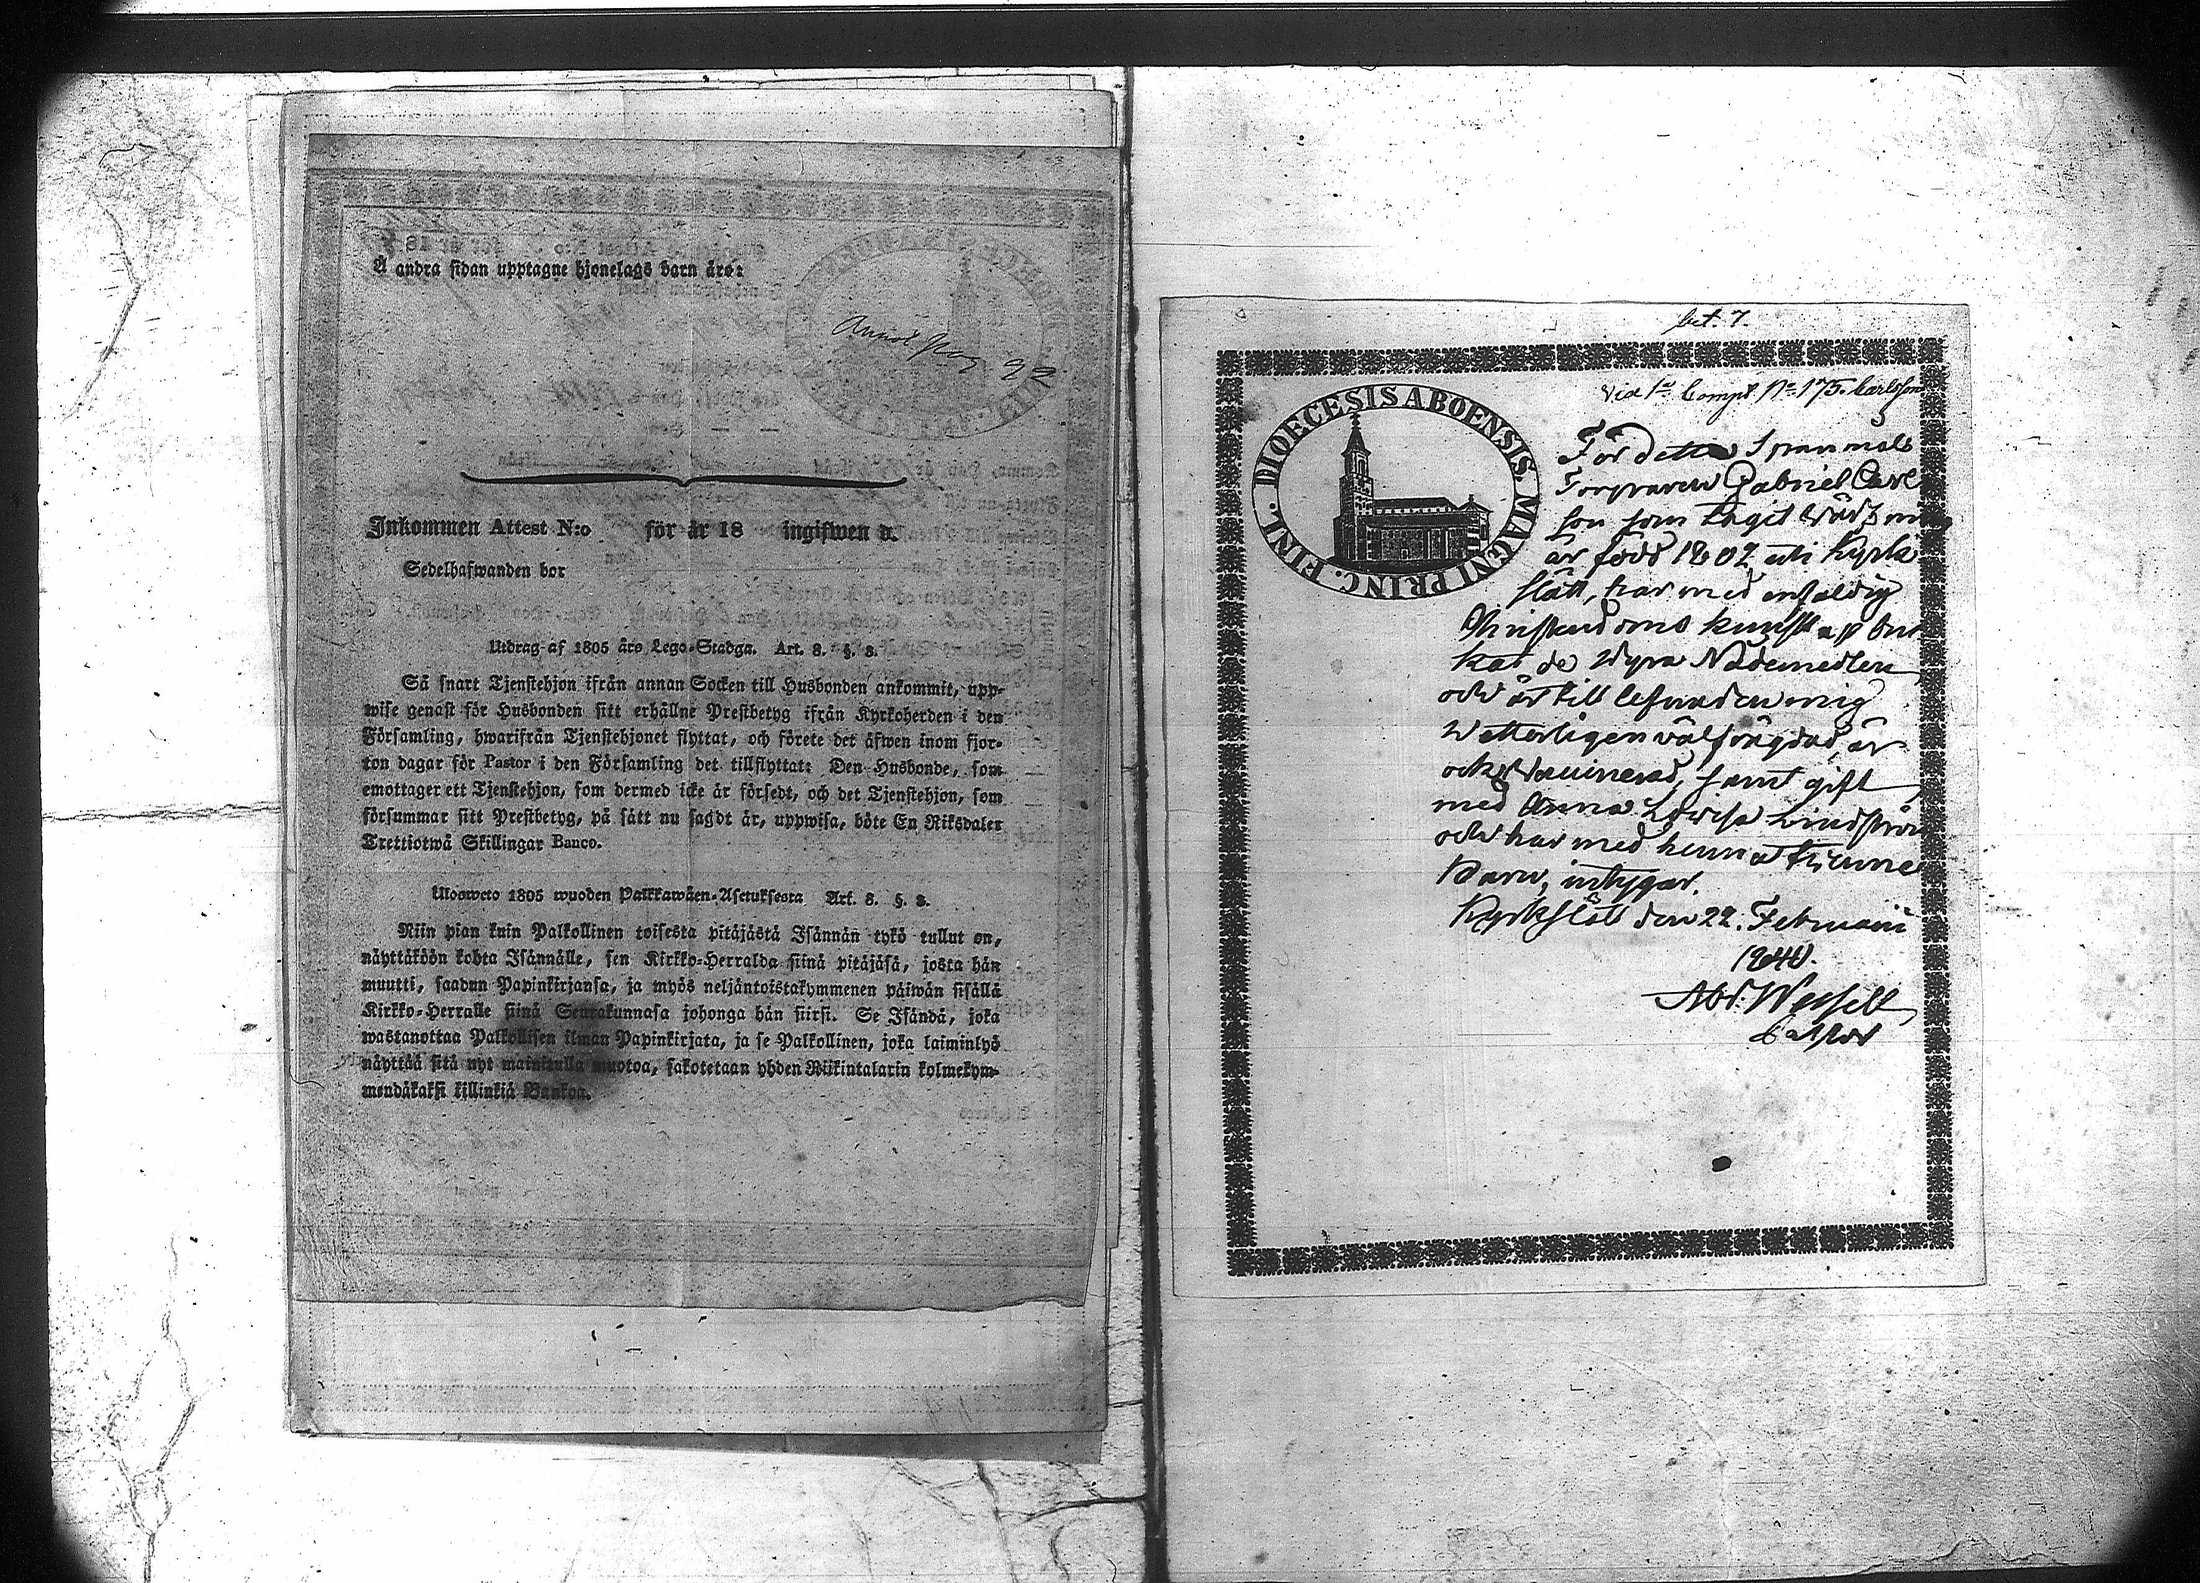 Å andra sidan upptagne hjonelags barn äro:
Annot. Pag 92
Inkommen Attest N:o för år 18 ingifwen d.
Sedelhafwanden bor
Utdrag af 1805 års Lego-Stadga. Art. 8. §. 8.
Så snart Tjenstehjon ifrån annan Socken till Husbonden ankommit, upp-
wise genast för Husbonden sitt erhållne Prestbetyg ifrån Kyrkoherden i den
Församling, hwarifrån Tjenstehjonet flyttat, och förete det äfwen inom fjor-
ton dagar för Pastor i den Församling det tillflyttat: Den Husbonde, som
emottager ett Tjenstehjon, som dermed icke är försedt, och det Tjenstehjon, som
försummar sitt Prestbetyg, på sätt nu sagdt är, uppwisa, böte En Riksdaler
Trettiotwå Skillingar Banco.
Ulosweto 1805 wuoden Palkkawäen-Asetuksesta Art. 8. §. 8.
Niin pian kuin Palkollinen toisesta pitäjästä Isännän tykö tullut on,
näyttäköön kohta Isännälle, sen Kirkko-Herralda siinä pitäjäsä, josta hän
muutti, saadun Papinkirjansa, ja myös neljäntoistakymmenen päiwän sisällä
Kirkko-Herralle siinä Seurakunnasa johonga hän siirsi. Se Isändä, joka
wastanottaa Palkollisen ilman Papinkirjata, ja se Palkollinen, joka laiminlyö
näyttää sitä nyt mainitulla muotoa, sakotetaan yhden Riikintalarin kolmekym-
mendäkaksi killinkiä Bankoa.
bet. 7.
Vid 1a Comp. No 175. Carlsson
DIOECESIS ABOENSIS MAGNI PRINC. FINL.
För detta Spanmåls
Torparen Gabriel Carl
son som tagit Wärfning
är född 1802 uti Kyrk
slätt, har med enfaldig
Christendoms kunskap bru
kat de dyra Nådemedlen
och är till lefnaden mig
Wetterligen välfrägdad, är
ock Vaccinerad, samt gift
med Anna Lowisa Lindström
och har med henne trenne
Barn, intygar.
Kyrkslätt den 22. Februarii
1840.
Abr. Wessell
Pastor